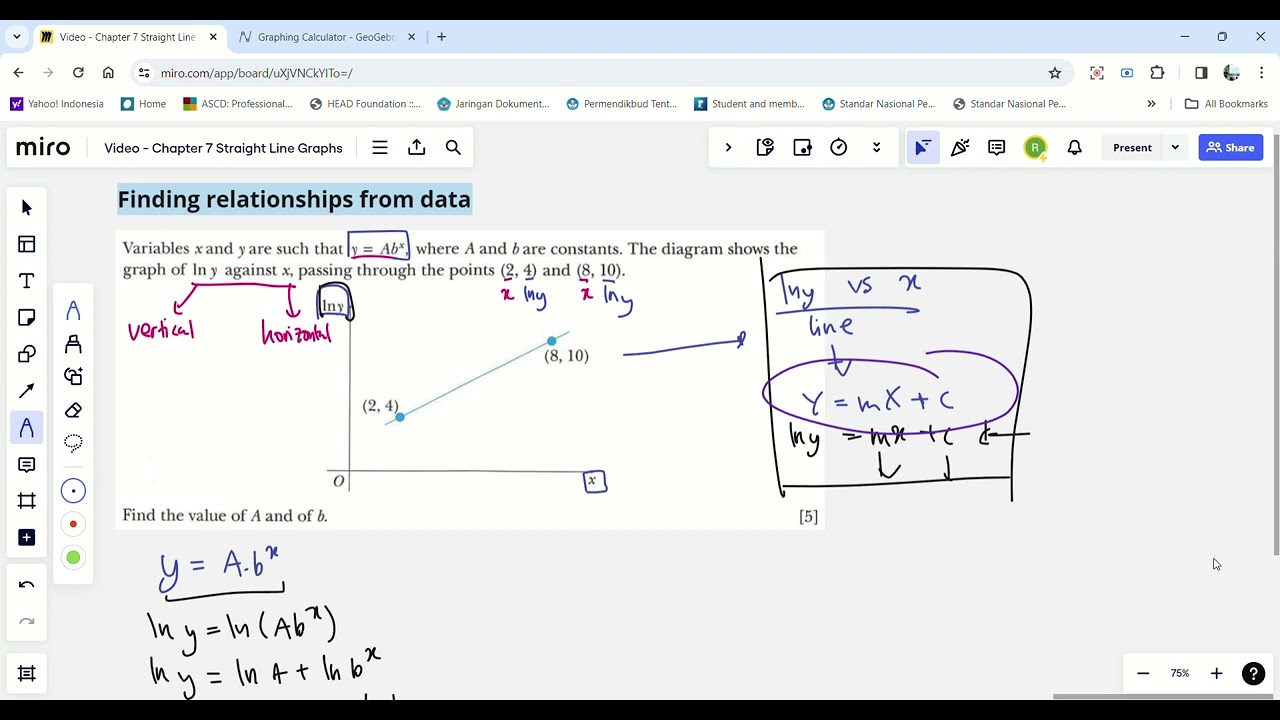 Video - Chapter 7 Straight Line
Graphing Calculator - GeoGebr
miro.com/app/board/uXjVNCkYITo=/
Yahoo! Indonesia
Home
ASCD: Professional...
HEAD Foundation ::...
Jaringan Dokument...
Permendikbud Tent...
Student and memb...
Standar Nasional Pe...
Standar Nasional Pe...
All Bookmarks
miro
Video - Chapter 7 Straight Line Graphs
R
Present
Share
Finding relationships from data
Variables x and y are such that y = Abˣ, where A and b are constants. The diagram shows the
graph of ln y against x, passing through the points (2, 4) and (8, 10).
x ln y x ln y
vertical
horizontal
ln y
(8, 10)
(2, 4)
O
x
Find the value of A and of b.
[5]
ln y vs x
line
Y = mX + C
ln y = mx + c
y = A.bˣ
ln y = ln (Abˣ)
ln y = ln A + ln bˣ
75%